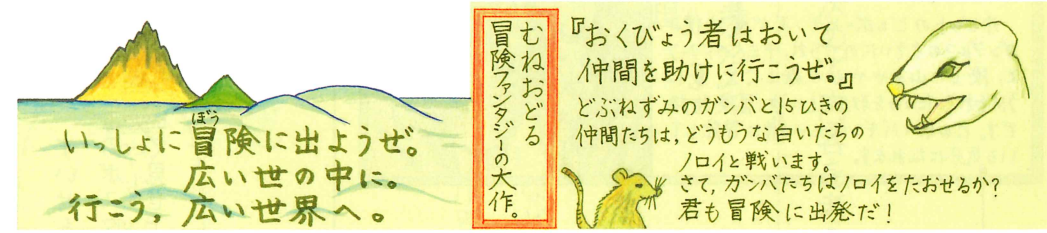 いっしょに冒険に出ようぜ。
ぼう
広い世の中に。
行こう,広い世界へ。
むねおどる
冒険ファンタジーの大作。
『おくびょう者はおいて
仲間を助けに行こうぜ。』
どぶねずみのガンバと15ひきの
仲間たちは,どうもうな白いたちの
ノロイと戦います。
さて,ガンバたちはノロイをたおせるか?
君も冒険に出発だ!